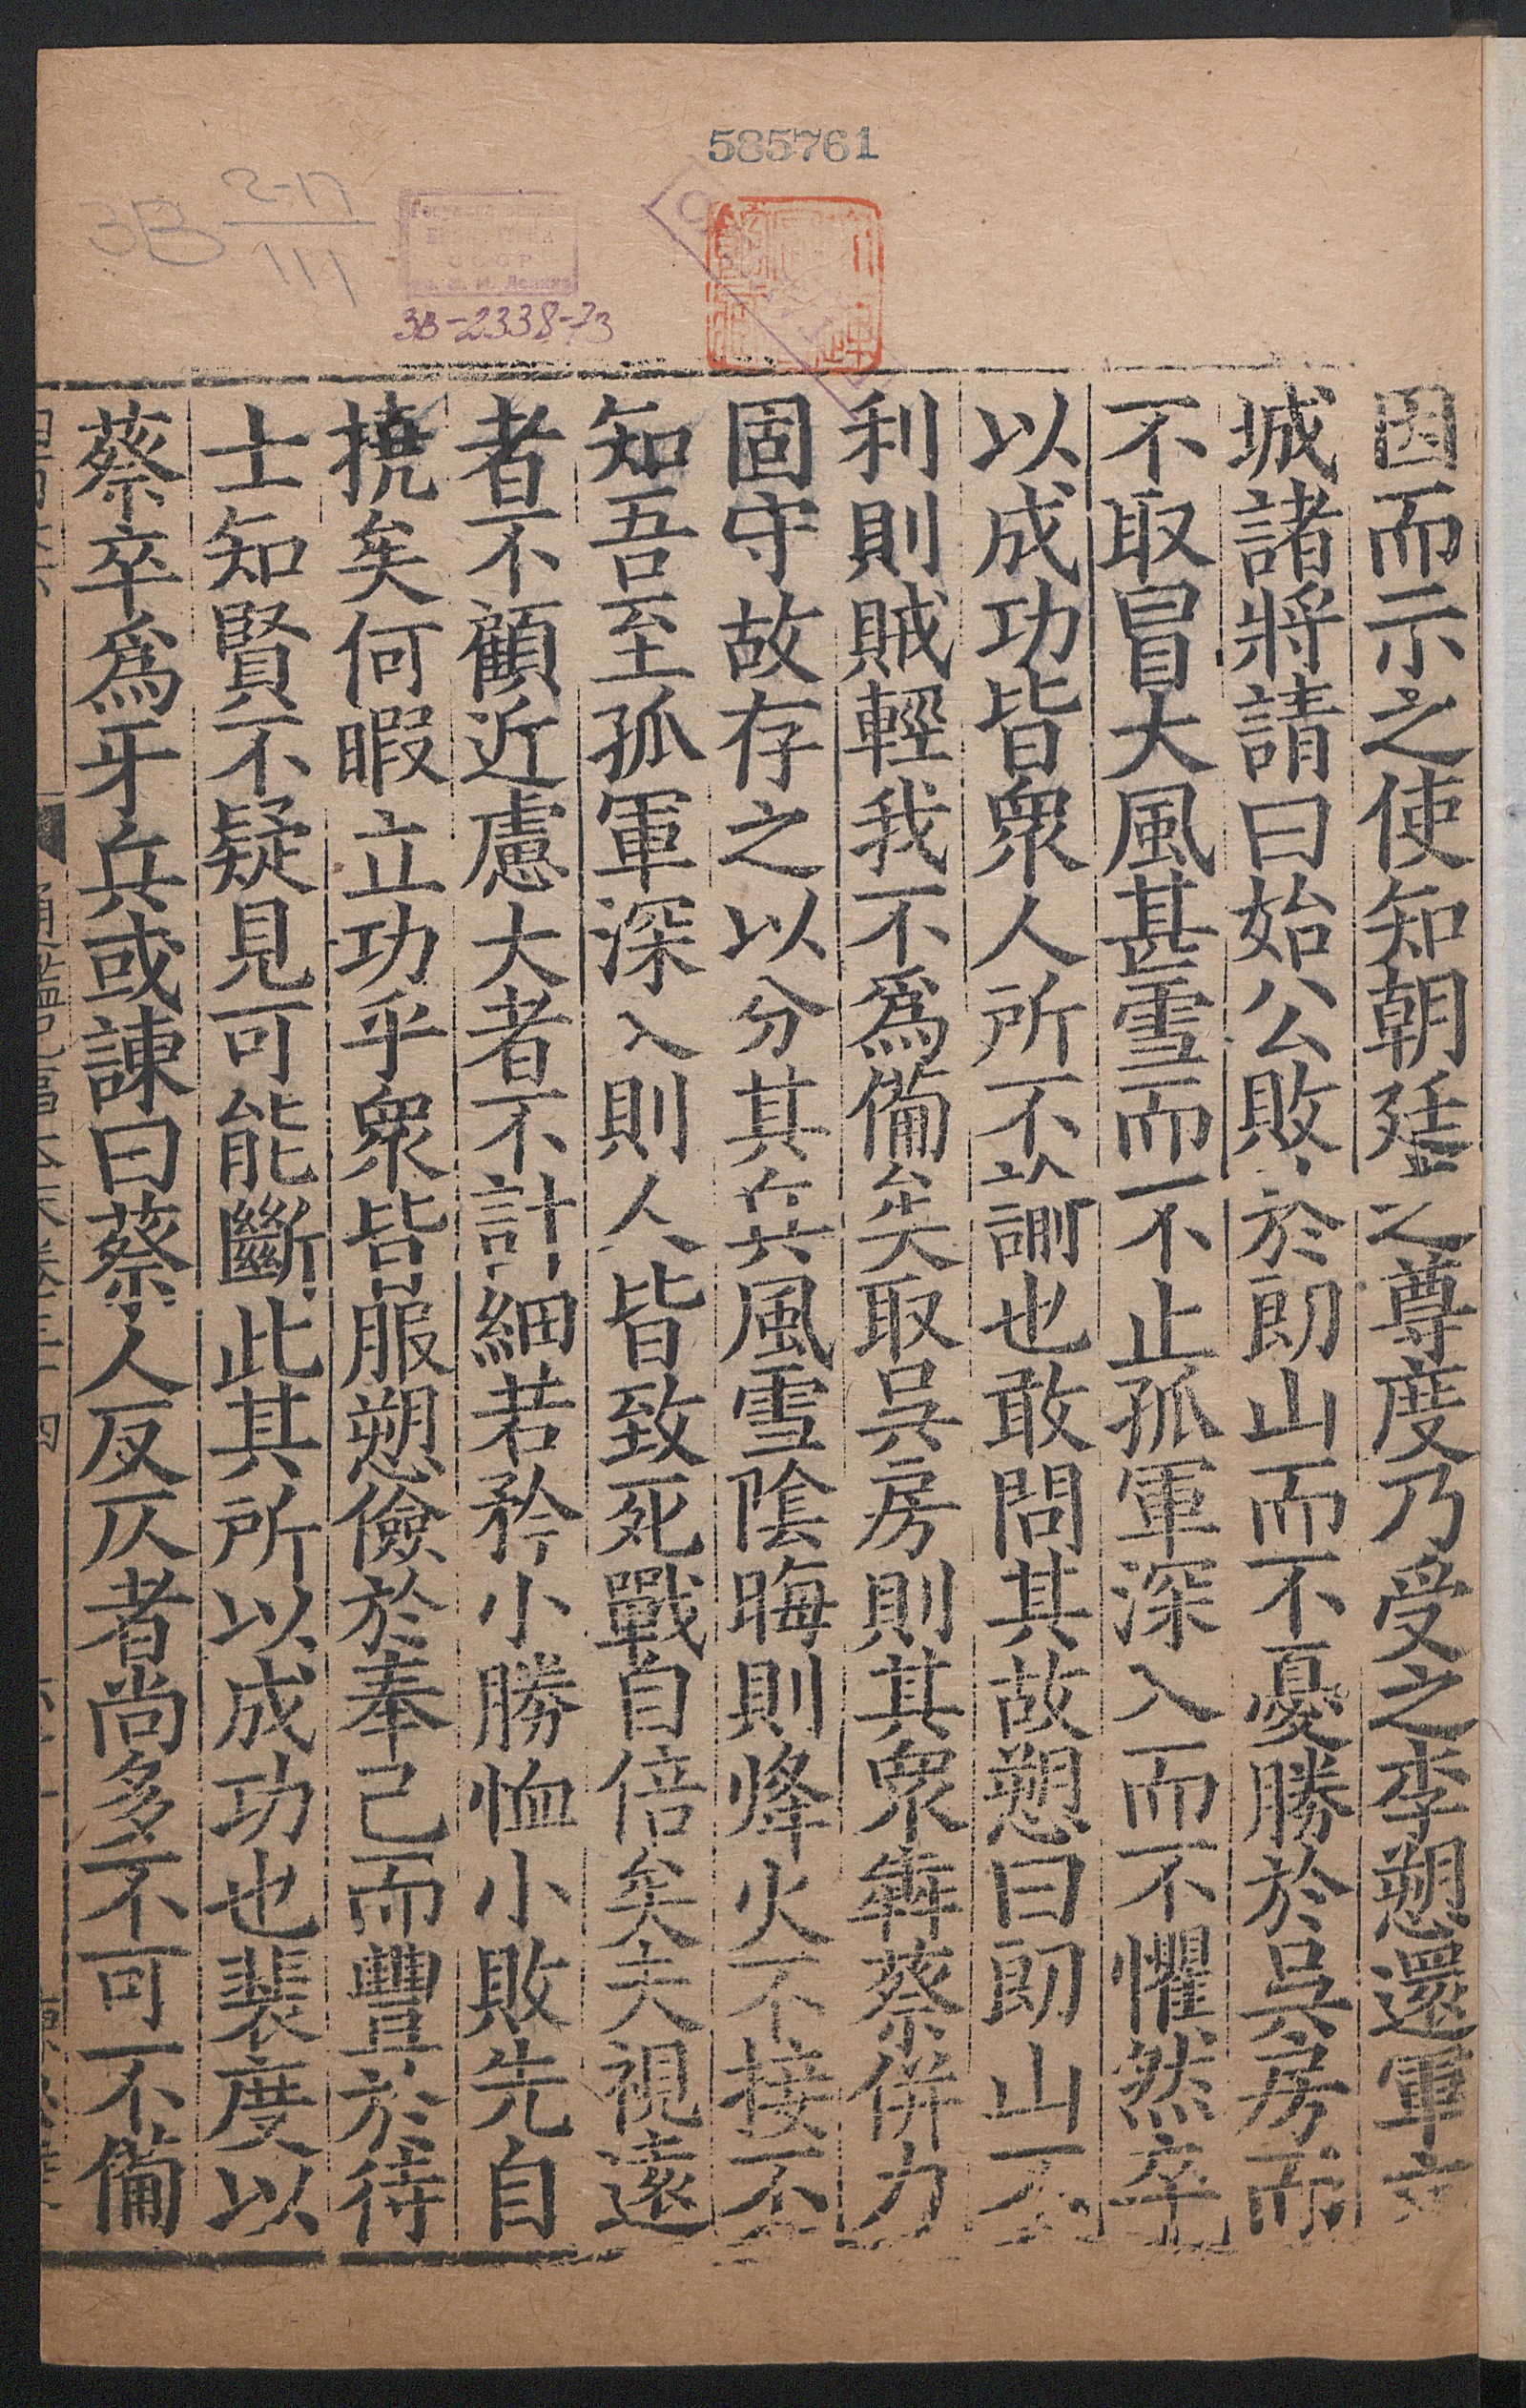 585761
3B 2-17
111
С С С Р
3B-2338-73
因而示之使知朝廷之尊度乃受之李愬還軍文
城諸將請曰始公敗於郎山而不憂勝於吳房而
不取冒大風甚雪而不止孤軍深入而不懼然卒
以成功皆衆人所不諭也敢問其故愬曰郎山不
利則賊輕我不爲備矣取吳房則其衆犇蔡併力
固守故存之以分其兵風雪陰晦則烽火不接不
知吾至孤軍深入則人皆致死戰自倍矣夫視遠
者不顧近慮大者不計細若矜小勝恤小敗先自
撓矣何暇立功乎衆皆服愬儉於奉己而豐於待
士知賢不疑見可能斷此其所以成功也裴度以
蔡卒爲牙兵或諫曰蔡人反仄者尚多不可不備